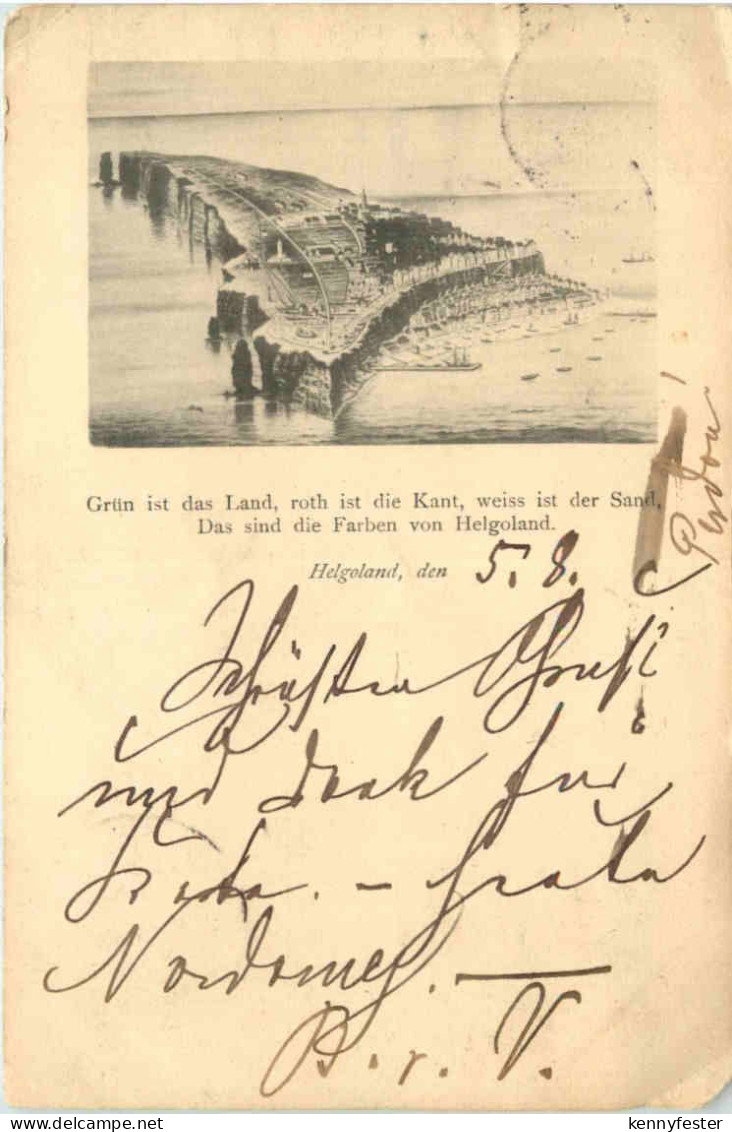 Grün ist das Land, roth ist die Kant, weiss ist der Sand,
Das sind die Farben von Helgoland.
Helgoland, den 5. 8.
Pardon!
Schönsten Gruß
und Dank für
Karte. – Heute
Norderney. —
B. v. V.
kennyfester